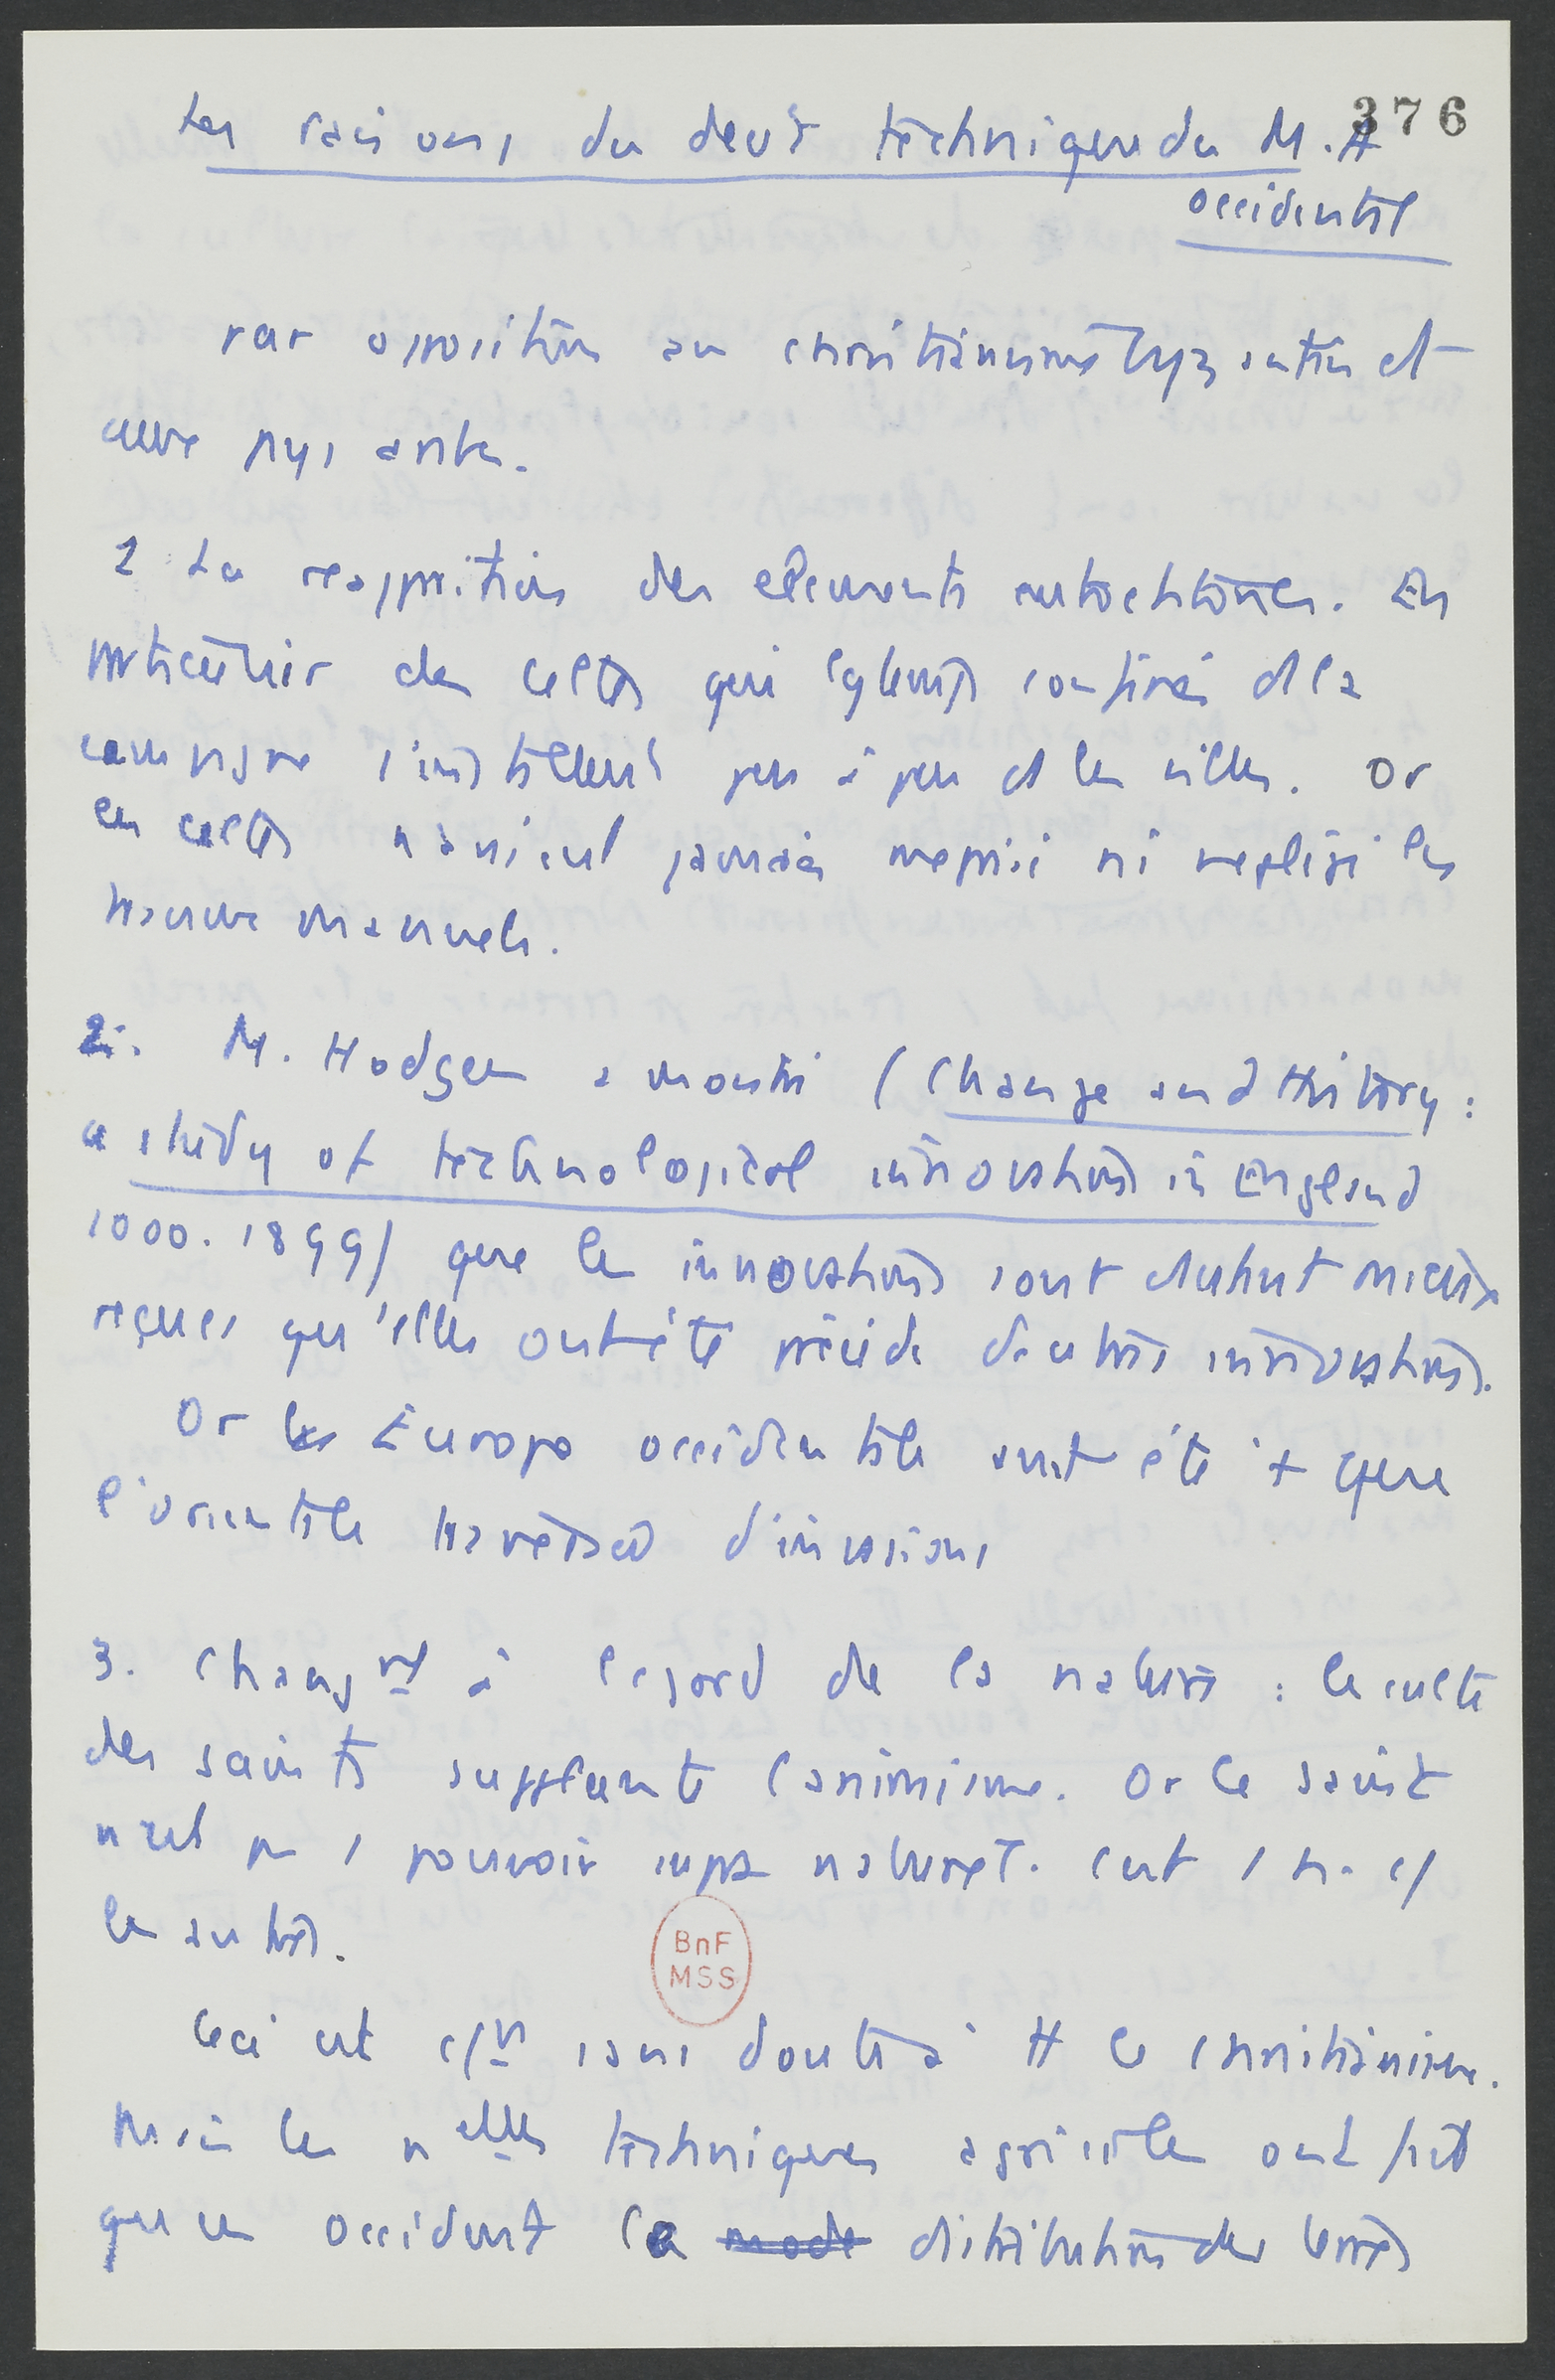 376
Les raisons du devt technique du M. A
occidental
par opposition au christianisme byzantin et
aux pays arabes.
1 La reapparition des elements autochtones. En
particulier des celtes qui longtemps confinés ds la
campagne s'installent peu à peu ds les villes. Or
les celtes n'avaient jamais meprisé ni negligé les
travaux manuels.
2. M. Hodgen a montré (Change and History :
a study of technological innovations in England
1000. 1899) que les innovations sont d'autant mieux
reçues qu'elles ont été précédé d'autres innovations.
Or les Europe occidentale avait été + que
l'orientale traversée d'invasions
3. Changnt à l'egard de la nature : le culte
des saints supplante l'animisme. Or le saint
n'est pas 1 pouvoir supra naturel. C'est 1 h. c/
les autres.
Ceci est c/n sans doute à tt le christianisme.
Mais les nelles techniques agricoles ont fait
qu'en occident la mode distribution des terres
BnF
MSS